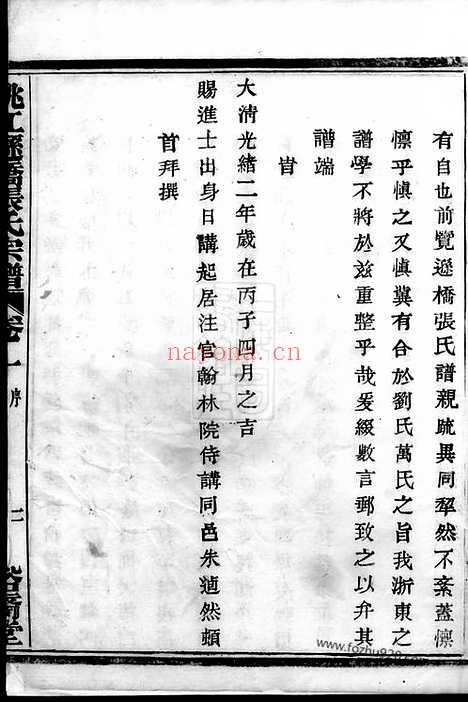 有自也前覽遜橋張氏譜親疏異同犂然不紊蓋懔
懔乎慎之又慎冀有合於劉氏萬氏之旨我浙東之
譜學不將於兹重整乎哉爰綴數言郵致之以弁其
譜端
旹
大淸光緒二年歲在丙子四月之吉
賜進士出身日講起居注官翰林院侍講同邑朱逌然頓
首拜撰
姚江遜橋張氏宗譜 卷一 序 二
nayona.cn
www.fozhu920.com